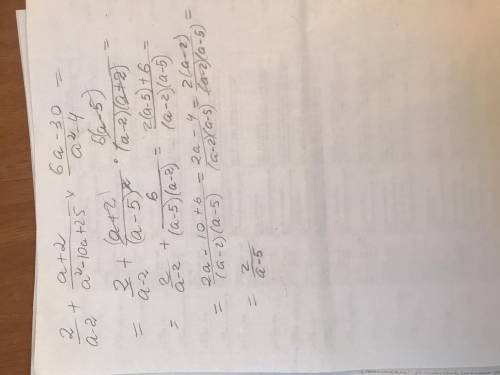 2/(a-2) + (a+2)/(a²-10a+25) × (6a-30)/(a²-4) =
= 2/(a-2) + (a+2)/(a-5)² · 6(a-5)/((a-2)(a+2)) =
= 2/(a-2) + 6/((a-5)(a-2)) = (2(a-5)+6)/((a-2)(a-5)) =
= (2a-10+6)/((a-2)(a-5)) = (2a-4)/((a-2)(a-5)) = 2(a-2)/((a-2)(a-5)) =
= 2/(a-5)